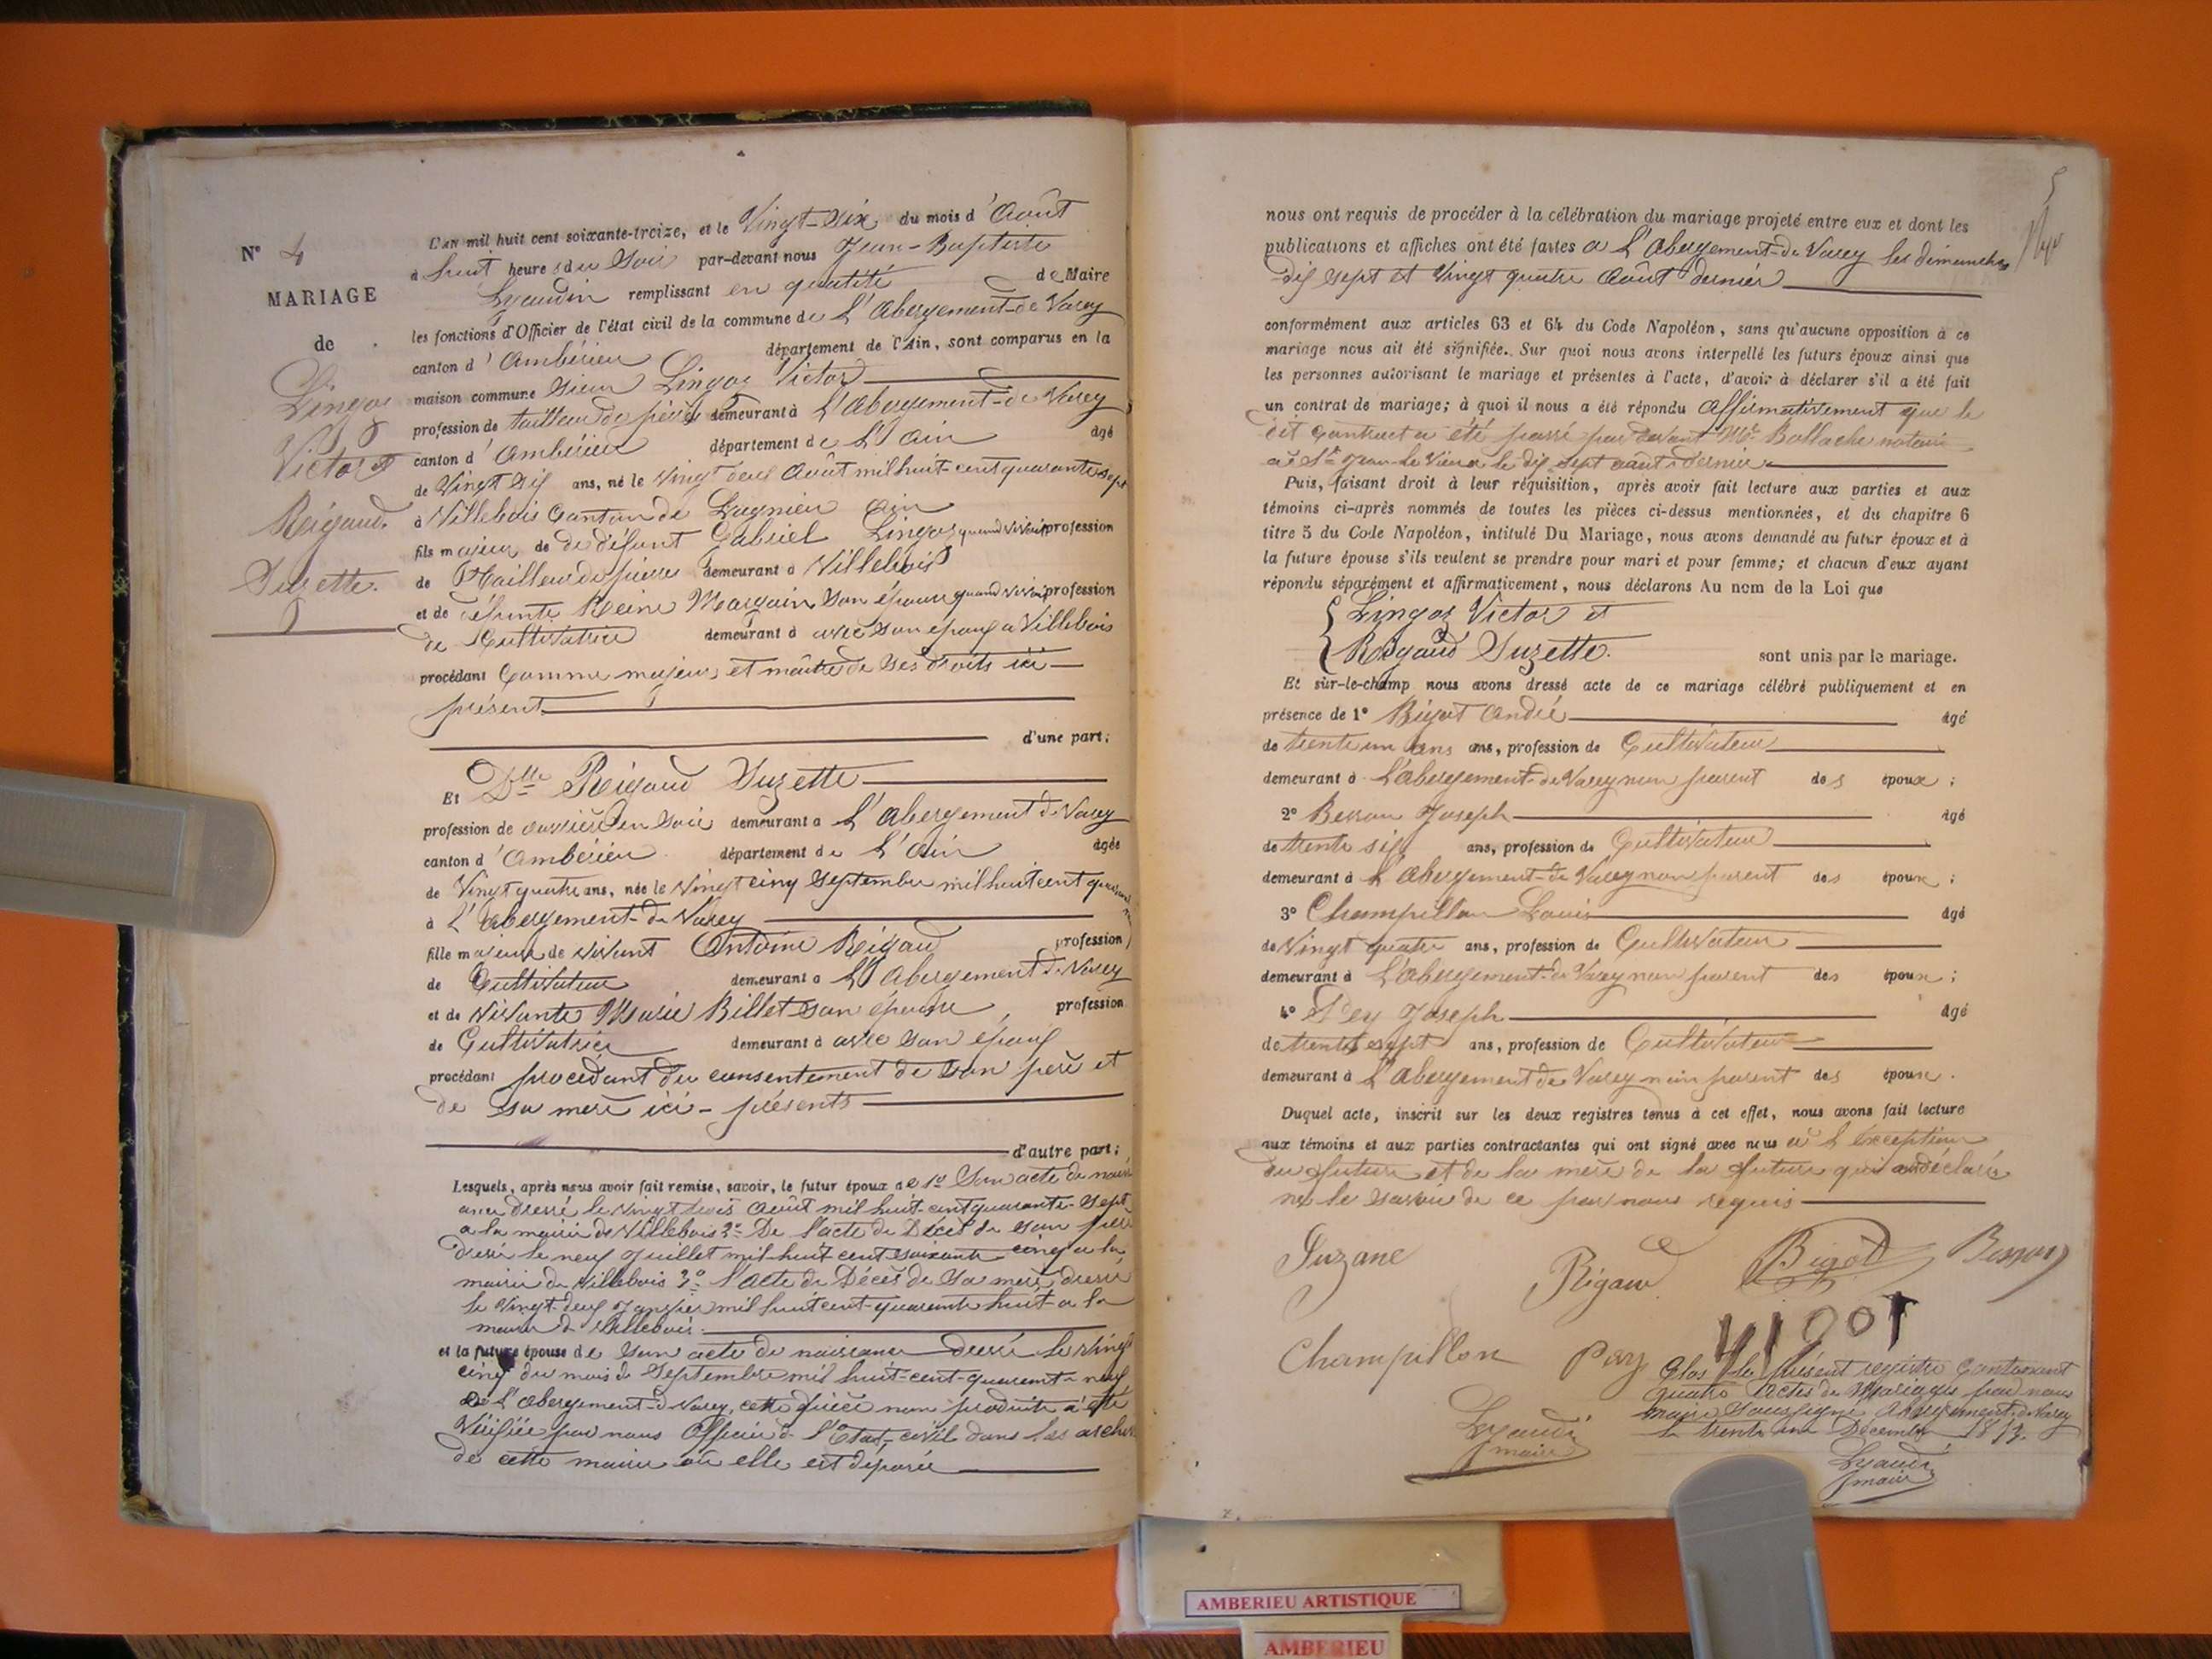 N° 4
MARIAGE
de
Lingos
Victor et
Reigaud
Suzette.
L'an mil huit cent soixante-treize, et le Vingt-Six du mois d'Août
à huit heures du Soir par-devant nous Jean-Baptiste
Lyaudin remplissant en qualité de Maire
les fonctions d'Officier de l'état civil de la commune de L'Abergement-de Varey
canton d'Ambérieu département de l'Ain, sont comparus en la
maison commune Sieur Lingos Victor
profession de tailleur de pierres demeurant à L'Abergement-de Varey
canton d'Ambérieu département de L'Ain âgé
de Vingt Six ans, né le Vingt deux Août mil huit-cent quarante sept
à Villebois Canton de Lagnieu Ain
fils majeur de de défunt Gabriel Lingos quand vivait profession
de Tailleur de pierre demeurant à Villebois
et de défunte Reine Margain Son épouse quand vivait profession
de Cultivatrice demeurant à avec Son époux à Villebois
procédant Comme majeur et maître de Ses droits ici
présent
d'une part;
Et Dlle Reigaud Suzette
profession de ouvrière en Soie demeurant à L'Abergement de Varey
canton d'Ambérieu département de L'Ain âgée
de Vingt quatre ans, née le Vingt cinq Septembre mil huit cent quarante
à L'Abergement-de Varey
fille majeure de vivant Antoine Reigaud profession
de Cultivateur demeurant à L'Abergement de Varey
et de Vivante Marie Billet Son épouse, profession
de Cultivatrice demeurant à avec Son époux
procédant procédant du consentement de Son père et
de Sa mère ici-présents
d'autre part;
Lesquels, après nous avoir fait remise, savoir, le futur époux de 1° Son acte de naiss
ance dressé le Vingt trois Août mil huit-cent quarante-sept
à la mairie de Villebois 2° De l'acte de Décès de Son père
dressé le neuf Juillet mil-huit cent soixante cinq à la
mairie de Villebois 3° l'acte de Décès de Sa mère, dressé
le Vingt-deux Janvier mil huit cent-quarante huit à la
mairie de Villebois.
et la future épouse de Son acte de naissance dressé le Vingt
cinq du mois de Septembre mil huit-cent-quarante-neuf
de L'Abergement-de Varey, cette pièce non produite a été
Vérifiée par nous Officier de l'Etat-civil dans les archives
de cette mairie où elle est déposée
5
nous ont requis de procéder à la célébration du mariage projeté entre eux et dont les
publications et affiches ont été faites à L'Abergement-de Varey les dimanches
dix sept et Vingt quatre Août dernier
conformément aux articles 63 et 64 du Code Napoléon, sans qu'aucune opposition à ce
mariage nous ait été signifiée. Sur quoi nous avons interpellé les futurs époux ainsi que
les personnes autorisant le mariage et présentes à l'acte, d'avoir à déclarer s'il a été fait
un contrat de mariage; à quoi il nous a été répondu affirmativement que le
dit Contract a été passé par devant Me Ballache notaire
à St Jean-le Vieux le dix sept août dernier
Puis, faisant droit à leur réquisition, après avoir fait lecture aux parties et aux
témoins ci-après nommés de toutes les pièces ci-dessus mentionnées, et du chapitre 6
titre 5 du Code Napoléon, intitulé Du Mariage, nous avons demandé au futur époux et à
la future épouse s'ils veulent se prendre pour mari et pour femme; et chacun d'eux ayant
répondu séparément et affirmativement, nous déclarons Au nom de la Loi que
Lingos Victor et
Reigaud Suzette. sont unis par le mariage.
Et sur-le-champ nous avons dressé acte de ce mariage célébré publiquement et en
présence de 1° Bigot André âgé
de trente un ans ans, profession de Cultivateur
demeurant à L'Abergement-de Varey non parent des époux;
2° Besson Joseph âgé
de trente six ans, profession de Cultivateur
demeurant à L'Abergement-de Varey non parent des époux;
3° Champillon Louis âgé
de Vingt quatre ans, profession de Cultivateur
demeurant à L'Abergement-de Varey non parent des époux;
4° Pey Joseph âgé
de trente sept ans, profession de Cultivateur
demeurant à L'Abergement de Varey non parent des époux.
Duquel acte, inscrit sur les deux registres tenus à cet effet, nous avons fait lecture
aux témoins et aux parties contractantes qui ont signé avec nous à l'exception
du futur et de la mère de la future qui ont déclaré
ne le savoir de ce par nous requis
Suzane Rigaud Bigot Besson
Champillon Pey
Lyaudi
maire
Clos le présent registre Contenant
quatre Actes de Mariages par nous
maire Soussigné Abergement-de Varey
le trente un Décembre 1873.
Lyaudi
maire
AMBERIEU ARTISTIQUE
AMBERIEU